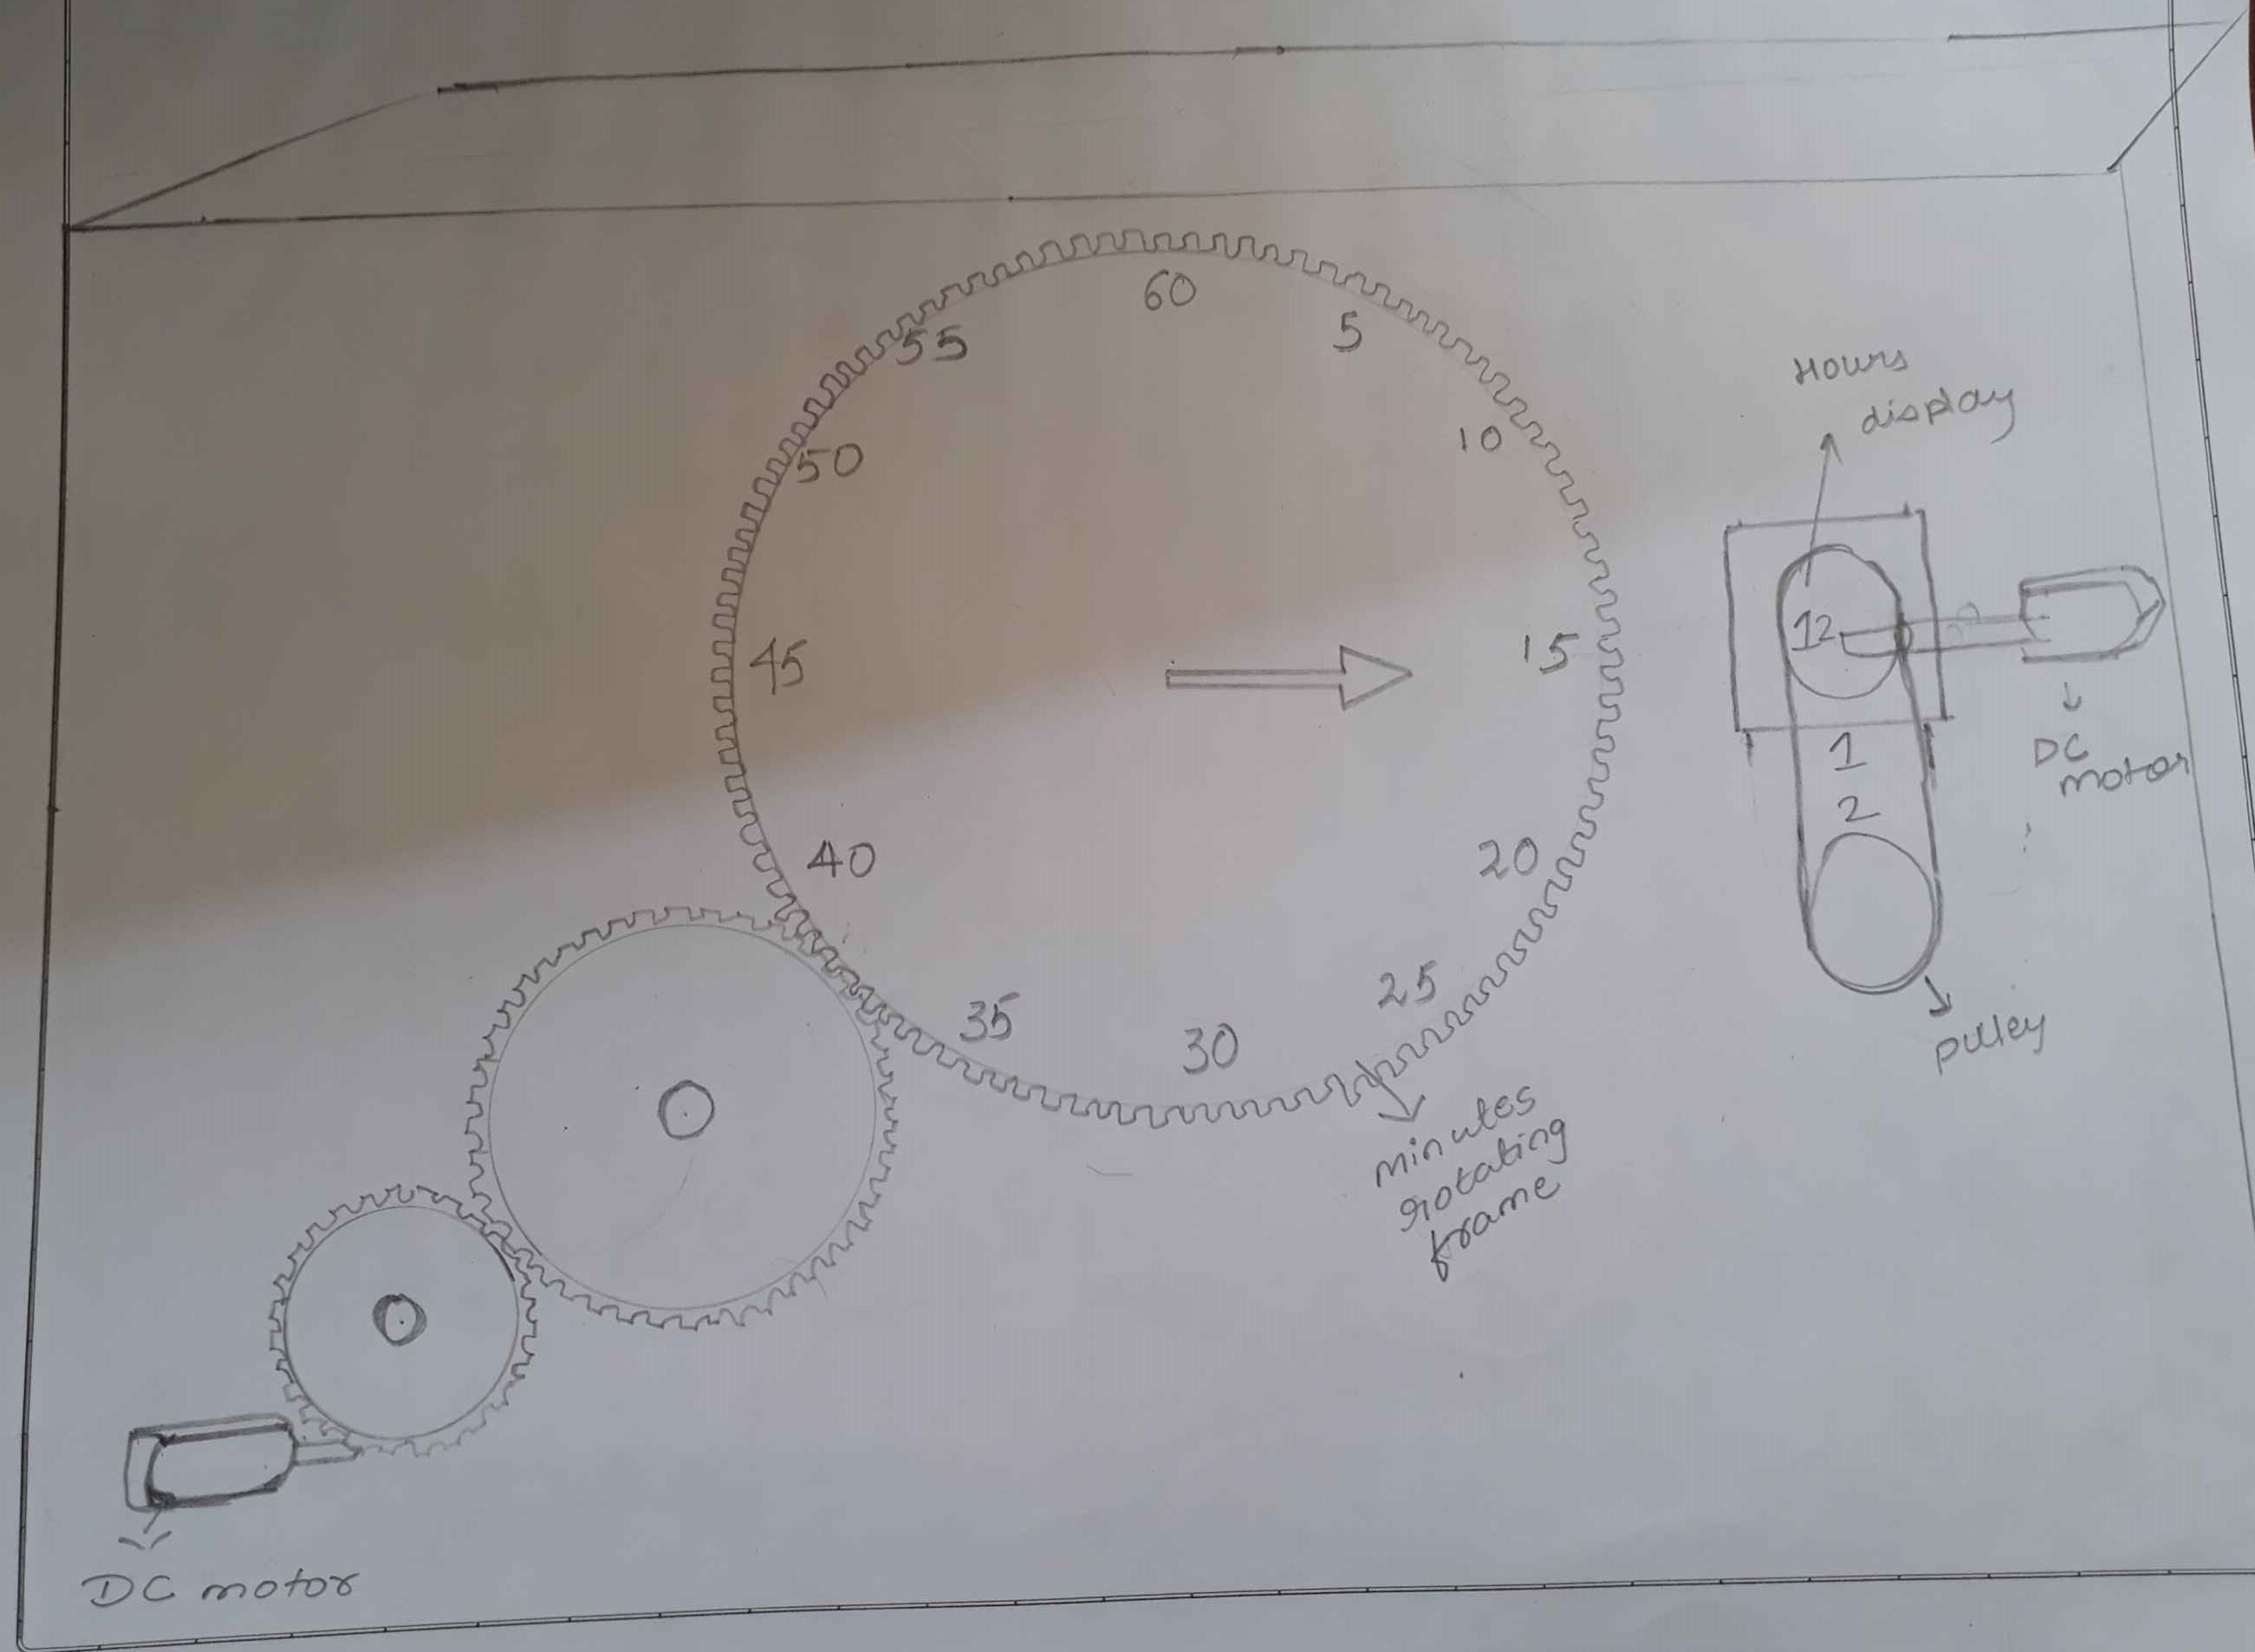 60
55
5
50
10
45
15
40
20
35
25
30
minutes
rotating
frame
Hours
display
12
1
2
DC
motor
pulley
DC motor